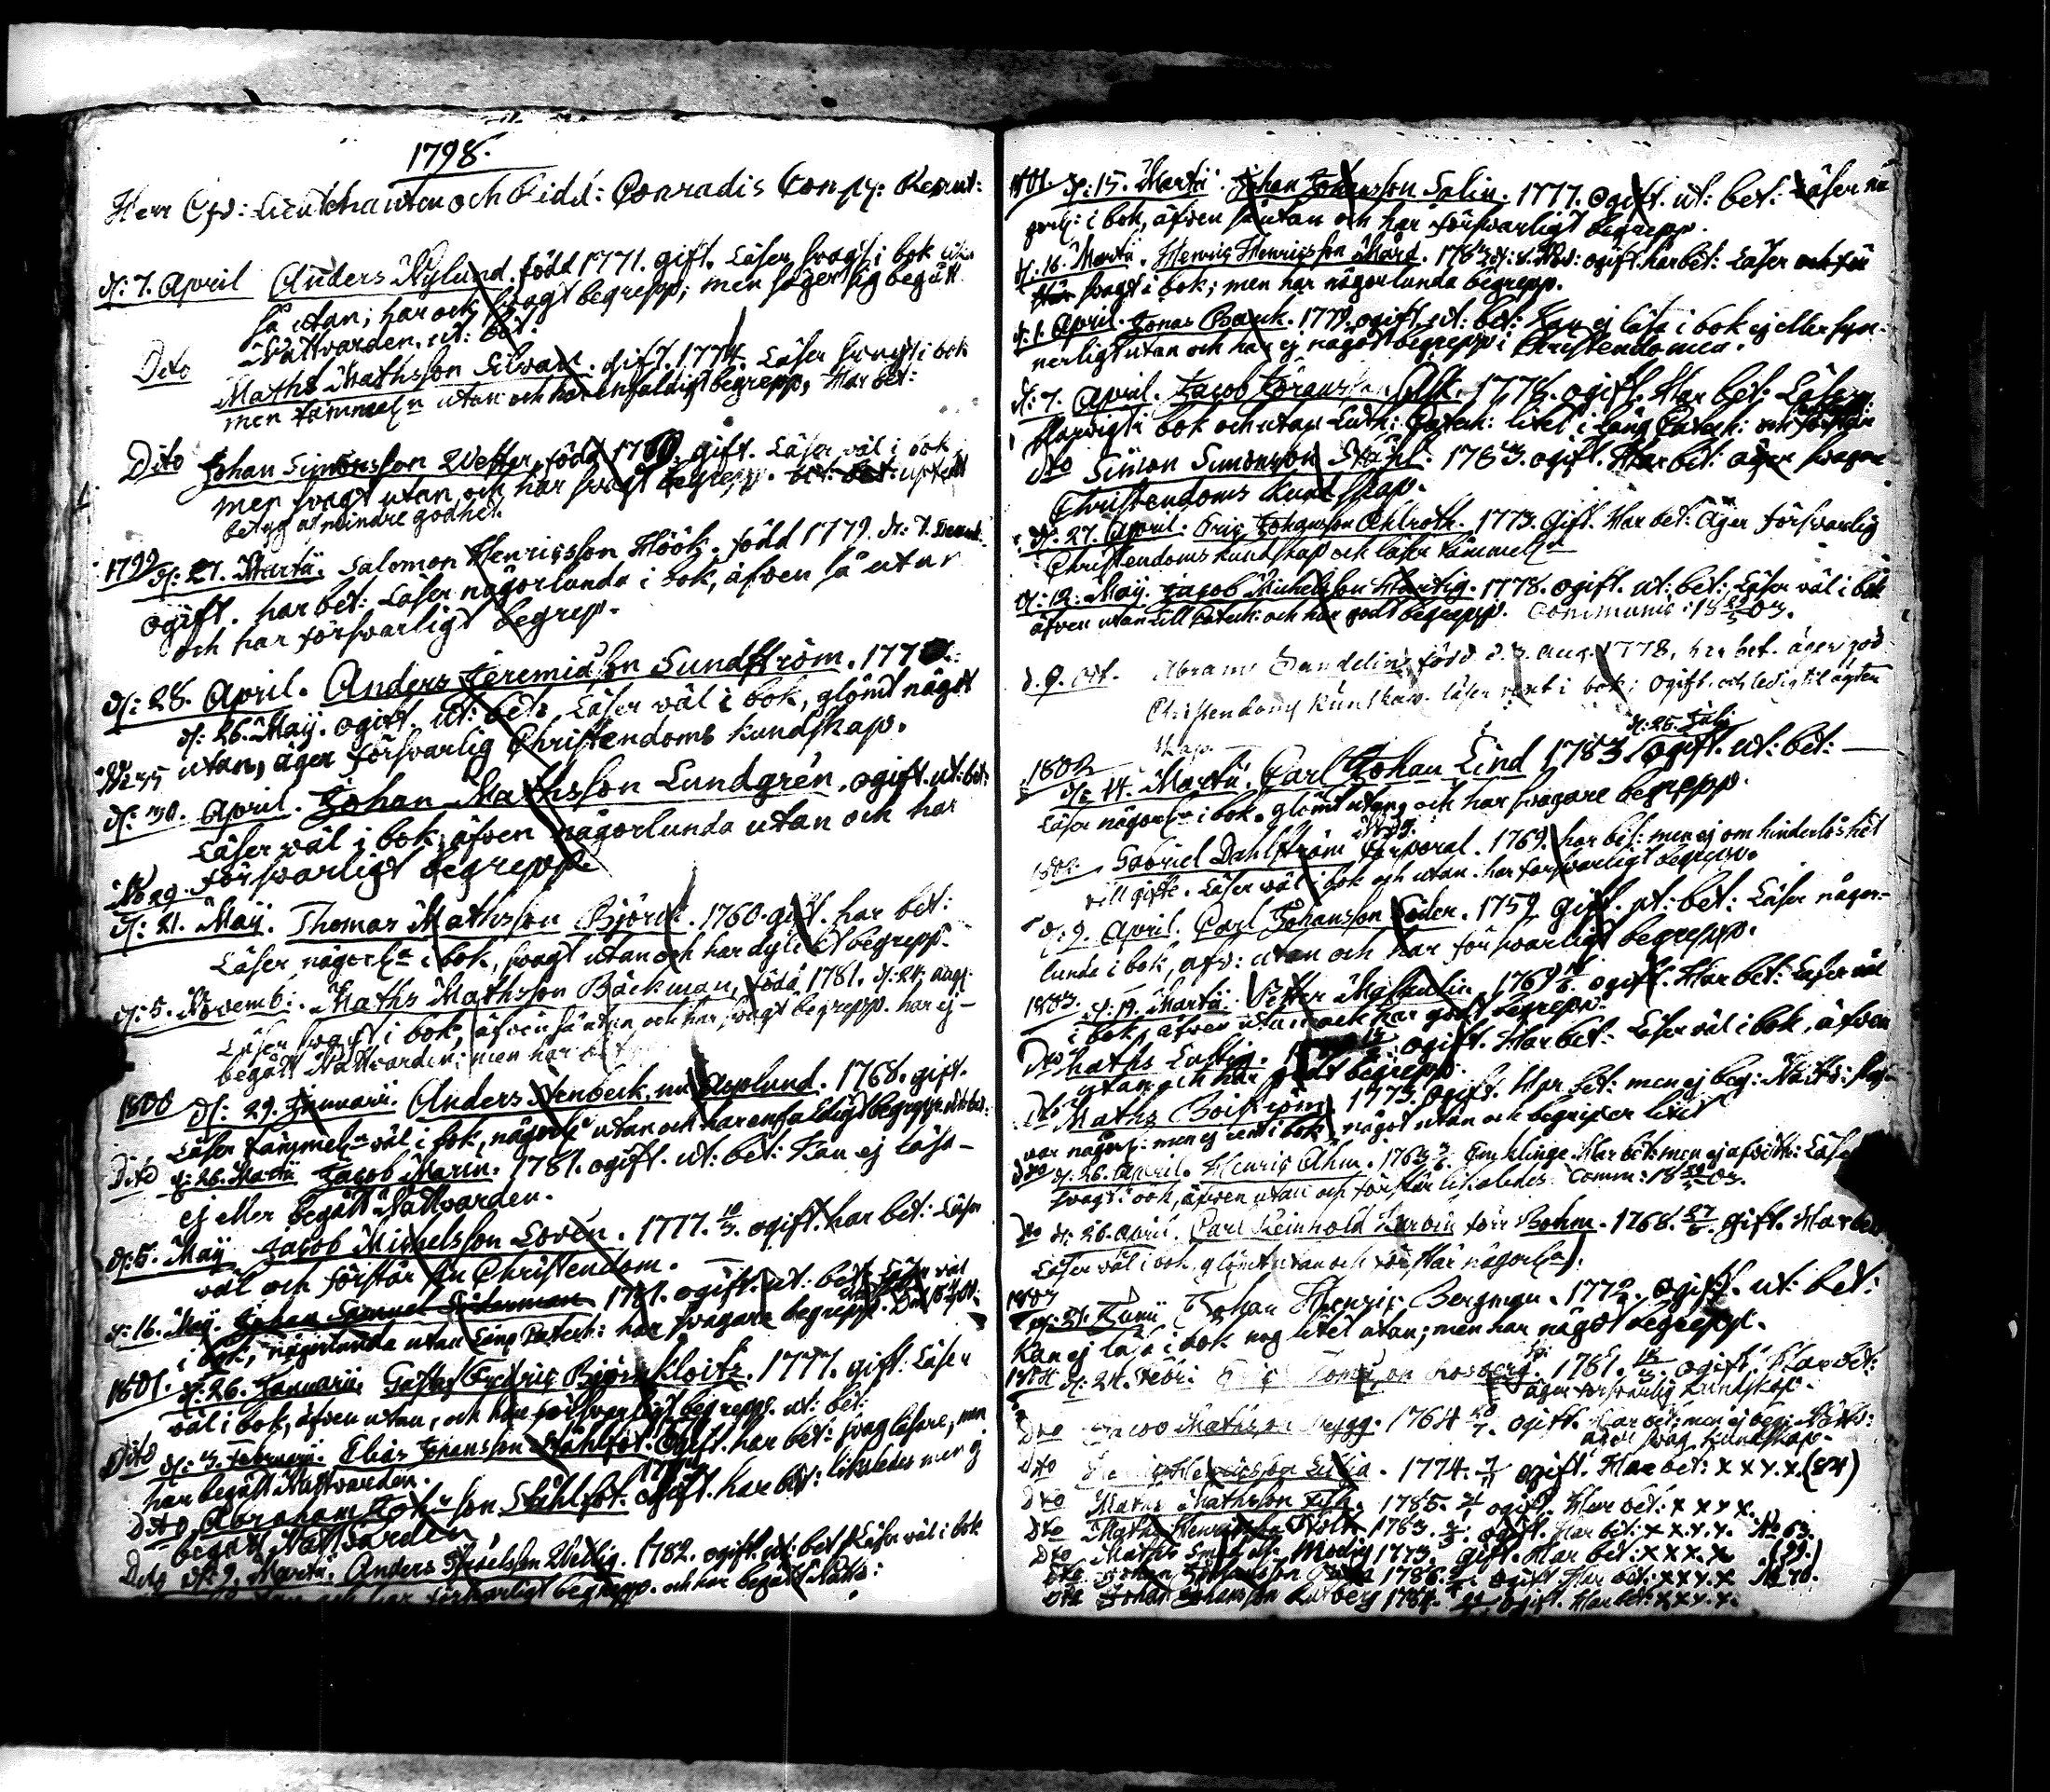 1798.
Herr Öfv: Lieutenanten och Ridd: Conradis Comp: Recrut:
d: 7. April Anders Nylund. född 1771. gift. Läser svagt i bok
så utan; har och svagt begrepp; men säger sig begått
Nattvarden. ut: bet:
Dito Maths Mathsson Silvan. gift. 1774. Läser svagt i bok
men tämmel:n utan och har enfaldigt begrepp, Har bet:
Dito Johan Simonsson Wetter, född gift. Läser väl i bok
men svagt utan, och har svagt begrepp.
betyg af mindre godhet.
1799 d: 27. Martii. Salomon Henricsson Höök. född 1779. d: 7.
ogift. har bet: Läser någorlunda i bok, äfven så utan
och har försvarligt begrep.
d: 28. April. Anders Jeremiæson Sundström.
d: 26. Maij. ogift. ut: bet: Läser väl i bok, glömt något
utan, äger försvarlig Christendoms kundskap.
d: 30. April. Johan Mathsson Lundgrén, ogift. ut: bet:
Läser väl i bok, äfven någorlunda utan och har
försvarligt begrepp.
No 29
d: 21. Maij. Thomas Mathsson Björck. 1760. gift. har bet:
Läser någorl:a i bok, svagt utan och har dylikt begrepp.
d: 5. Novemb: Maths Mathsson Bäckman, född 1781. d: 24. Aug:
Läser svagt i bok, äfven så utan och har svagt begrepp. har ej
begått Nattvarden; men har
1800 d: 29. Januarii. Anders Stenbeck, nu Asplund. 1768. gift.
Läser tämmel:n väl i bok, någorl:a utan och har enfaldigt begrepp. ut: bet:
Dito d: 26. Martii Jacob Marin. 1781. ogift. ut: bet: Kan ej läsa
ej eller begått Nattvarden.
d: 5. Maij Jacob Michelsson Lovén. 1777. 10/3. ogift. har bet: Läser
väl och förstår sin Christendom.
d: 16. Maij. Johan Samuel Söderman 1781. ogift. ut: bet: Läser väl
i bok, någorlunda utan Catech: har svagare begrepp.
1801. d: 26. Januarii. Gustaf Fredric Björnkloitz. 1777. gift. Läser
väl i bok, äfven utan, och har försvarligt begrepp. ut: bet:
Dito d: 3. Februarii. Elias Johansson Ståhlfot. ogift. har bet: svag läsare, men
har begått Nattvarden.
Dito Abraham Johansson Ståhlfot. ogift. har bet: likaledes men ej
begått Nattvarden
Dito d: 9. Martii. Anders Wellig. 1782. ogift. ut: bet: Läser väl i bok
utan och har försvarligt begrepp. och har begått Natt:
1801. d: 15. Martii. Johan Johansson Salin. 1777. ogift. ut: bet: Läser nå
gorl: i bok, äfven så utan och har försvarligt begrepp.
d: 16. Martii. Henric Henricsson Mård. ogift. har bet: Läser
svagt i bok; men har någorlunda begrepp.
d: 1. April. Jonas Banck. 1779. ogift. ut: bet: Kan ej läsa i bok ej eller syn-
nerligt utan och har ej något begrepp i Christendomen.
d: 7. April. Jacob Göransson Ask. 1778. ogift. Har bet: Läser
i bok och utan Luth: Catech: litet i lång Catech:
Dto Simon Simonsson Ståhl. ogift. Har bet: äger svagare
Christendoms kundskap.
d: 27. April. Eric Johansson Ahlroth. 1773. Gift. Har bet: Äger försvarlig
Christendoms kundskap och läser tämmel:n
d: 12. Maij. Jacob Michelsson Hurtig. 1778. ogift. ut: bet: Läser väl i bok
äfven utan till Catech: och har godt begrepp. Communic:
d. 9. oct. Abram Sandelin född d. 3. Aug. 1778, har bet. äger god
Christendoms kunskap. läser rent i bok; ogift. och ledig til ägten
skap.
1802 d: 14. Martii. Carl Johan Lind 1783. d: 25. Julij ogift. ut: bet:
Läser någorl:a i bok, glömt utan, och har svagare begrepp.
1802. Gabriel Dahlström Corporal. 1769. har bet: men ej om hinderlöshet
till gifte. Läser väl i bok och utan. har försvarligt begrepp.
d: 9. April. Carl Johansson Söder. 1759. gift. ut: bet: Läser någor-
lunda i bok, äfv: utan och har försvarligt begrepp.
1803. d: 19. Martii. Petter ogift. Har bet: Läser väl
i bok, äfven utan och har godt begrepp.
Dto Maths Lustig. ogift. Har bet: Läser väl i bok, äfven
utan och har godt begrepp.
Dto Maths Boiström 1773. ogift. Har bet: men ej beg: Nattv:
någorl: men ej rent i bok, något utan och begriper litet
Dto d: 26. April. Henric Ahm. Har bet: men Läser
svagt i bok, äfven utan och förstår likaledes. Comm:
Dto d: 26. April. Carl Reinhold förr Bohm. 1768. gift. Har bet:
Läser väl i bok, glömt utan och förstår någorl:a
d: 21. Junii Johan Henric Bergman. 1772. ogift. ut: bet:
Kan ej läsa i bok nog litet utan; men har något begrepp.
d: 24. Febr: Rosberg. 1781. ogift. Har bet:
äger försvarlig kundskap.
Dto Mathsson 1764 ogift. Har bet: men ej beg: Nattv:
äger svag kundskap.
Dto Henricsson Lilja. 1774. ogift. Har bet: x x y. x. (84)
Dto Maths Mathsson 1785. ogift. Har bet: x x y x.
Dto Maths Henricsson Stolt 1763. ogift. Har bet: x x y. x. No 63.
Dto Maths Modig 1773. gift. Har bet: x x x. x. (39.)
Dto Johan Johansson 1786. ogift Har bet: x x y. x No 70.
Dto Johan Johansson Rutberg 1784. ogift. Har bet: x x y. x.